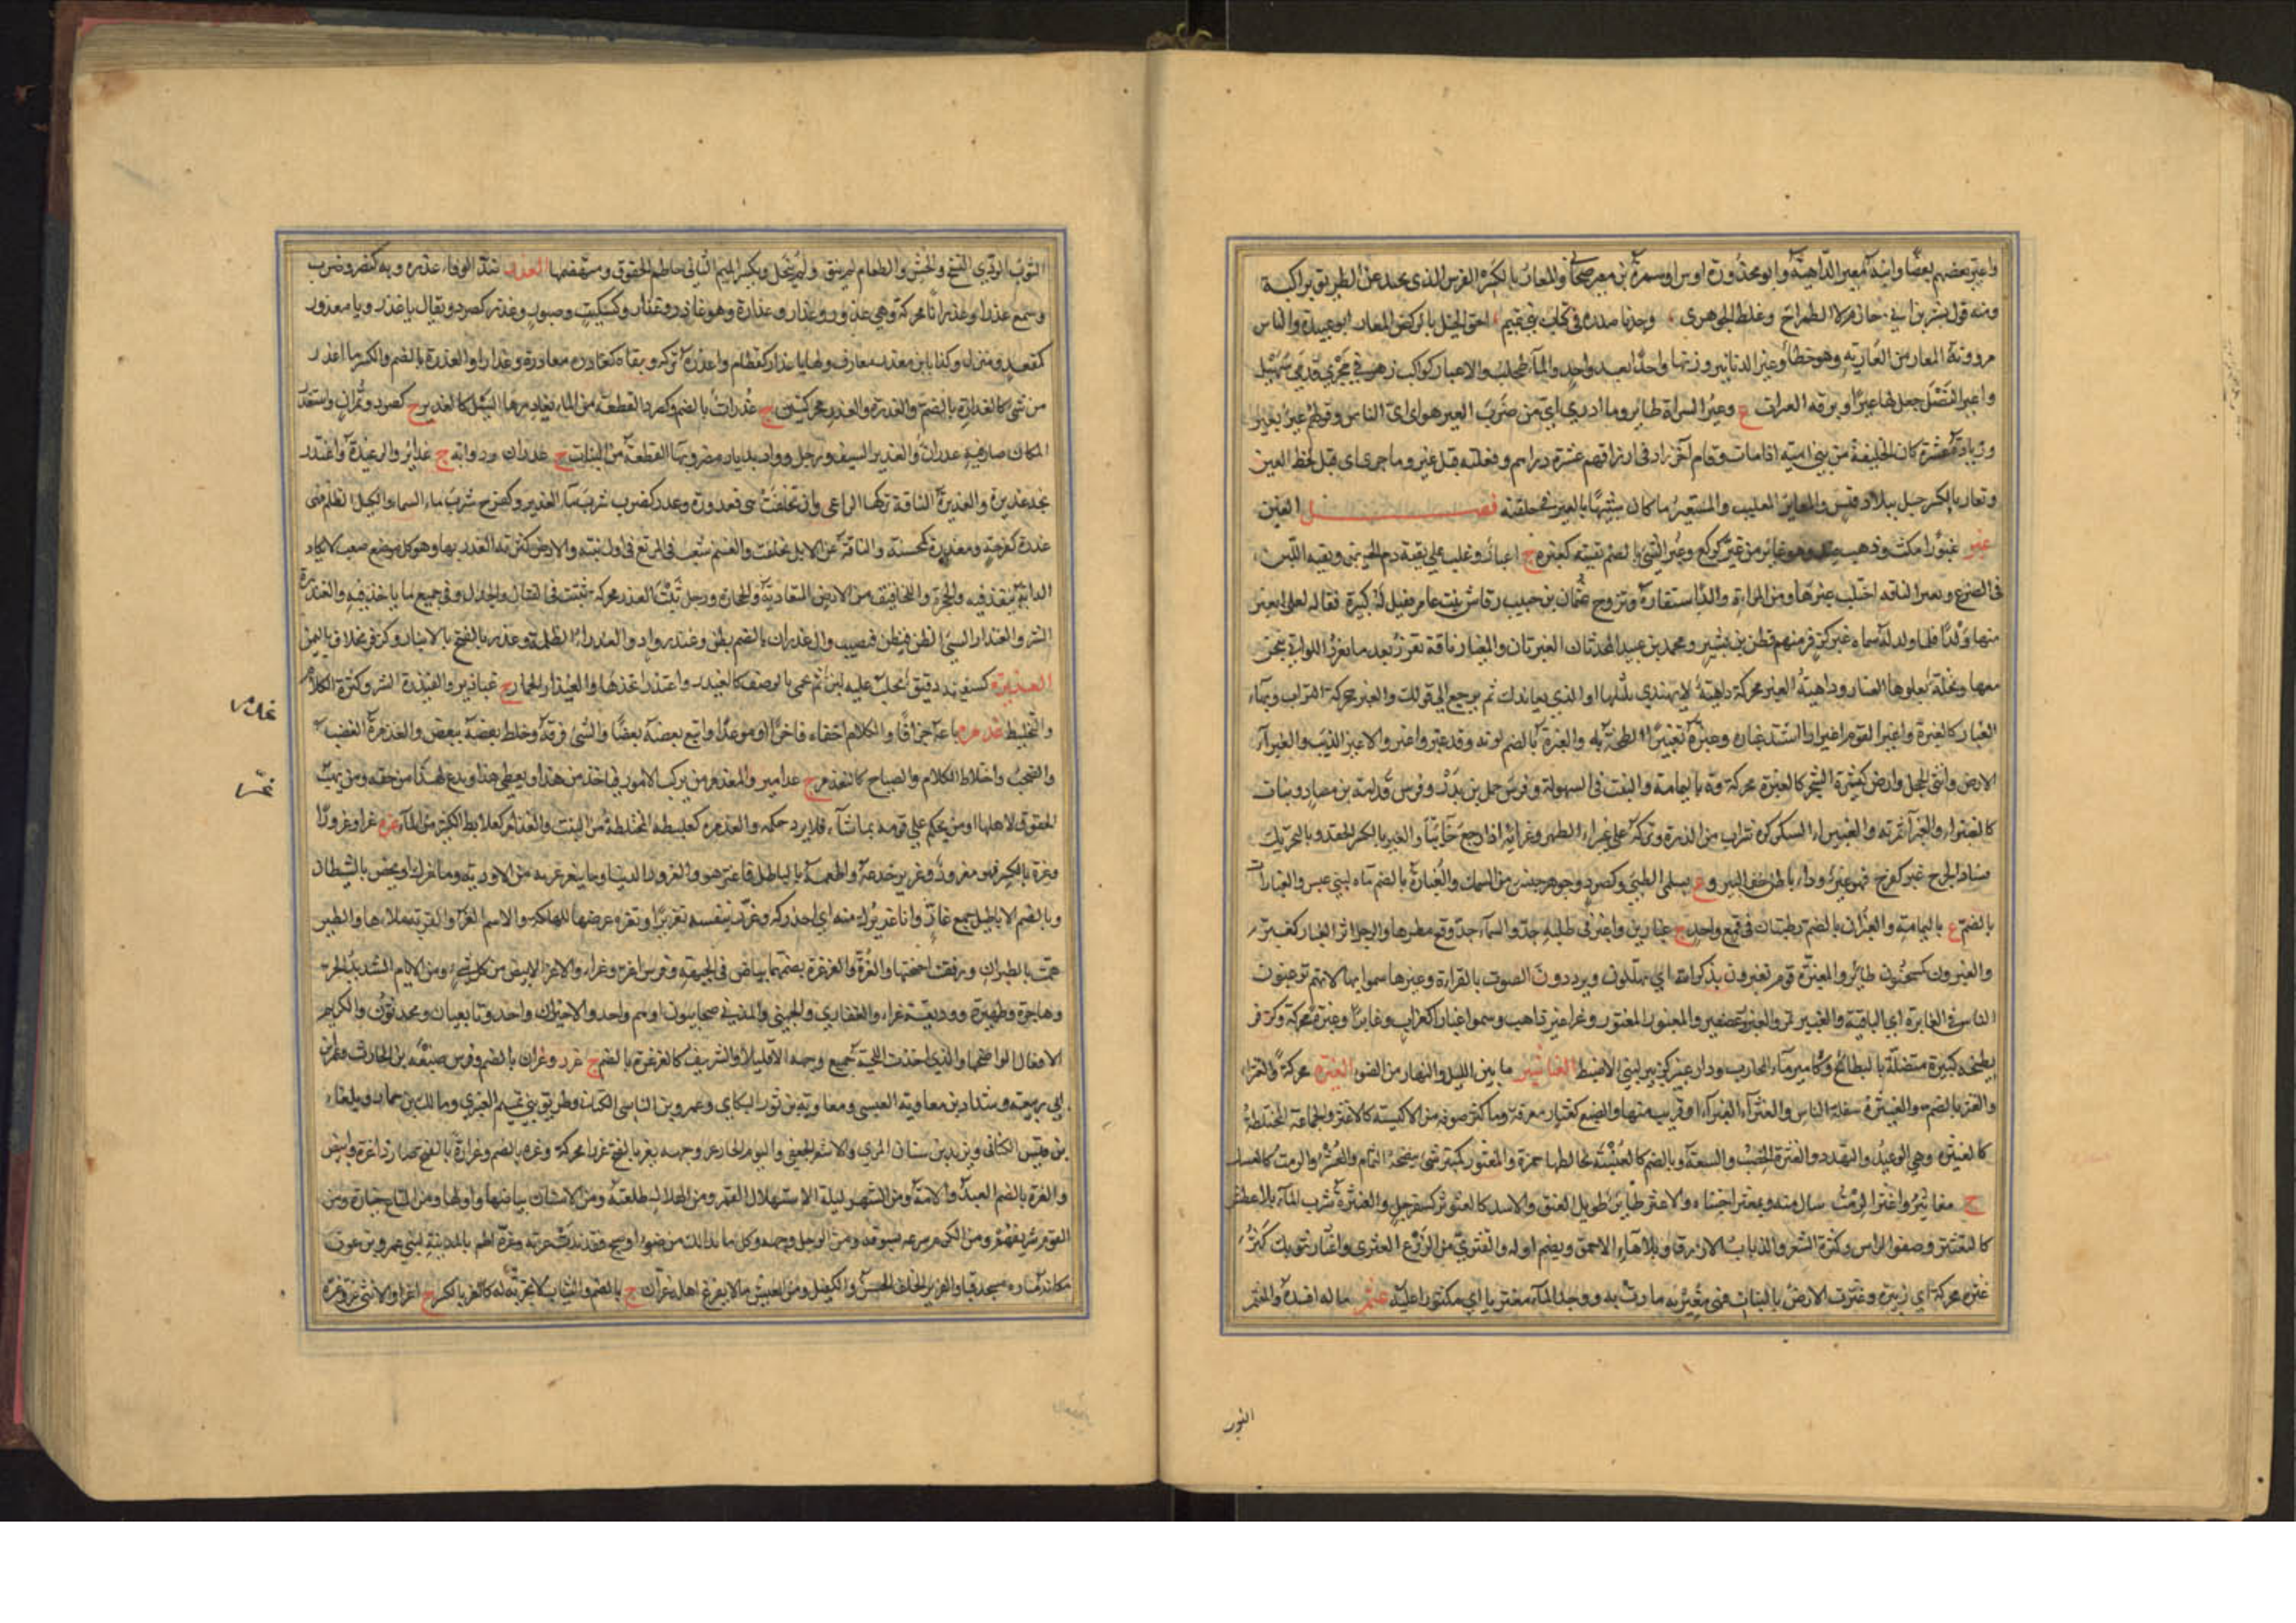 واعتر بعضهم بعضا وابنة معير الداهية وابو محذورة اوس او سمرة بن معير صحابي والمعار بالكسر الفرس الذى يحيد عن الطريق براكبه
ومنه قول بشر بن ابي خازم لا الطرماح وغلط الجوهرى وجدنا فى كتاب بني تميم احق الخيل بالركض المعار ابو عبيدة والناس
يروونه المعار من العارية وهو خطأ وعير الدنانير وزنها واحدا بعد واحد والماء طحلب والاعيار كواكب زهر في مجرى قدمى سهيل
واعير النصل جعل لها عيرا وبرقة العيرات ع وعير السراة طائر وما ادري اي من ضرب العير هو اى اى الناس وقولهم عير بعير
وزيادة عشرة كان الخليفة من بني امية اذا مات وقام اخر زاد فى ارزاقهم عشرة دراهم وفعلته قبل عير وما جرى اى قبل لحظ العين
وتعار بالكسر جبل ببلاد قيس والمعاير المعايب والمستعير ما كان شبيها بالعير فى خلقته فصل الغين
غبر غبورا مكث وذهب ضد وهو غابر من غبر كركع وغبر الشئ بالضم بقيته كغبره ج اغبار وغلب على بقية دم الحيض وبقية اللبن
فى الضرع وتغبر الناقة احتلب غبرها ومن المراة ولدا استفاده وتزوج عثمان بن حبيب رقاش بنت عامر فقيل له كبيرة فقال لعلى اتغبر
منها ولدا فلما ولد له سماه غبر كزفر منهم قطن بن نسير ومحمد بن عبيد المحدثان الغبريان والمغبار ناقة تغزر بعد ما تغزر اللواتي ينتجن
معها ونخلة يعلوها الغبار وداهية الغبر محركة داهية لا يهتدى لمثلها او الذي يعاندك ثم يرجع الى قولك والغبر محركة التراب وبهاء
الغبار كالغبرة واغبر اليوم اغبرارا اشتد غباره وغبره تغبيرا لطخه به والغبرة بالضم لونه وقد غبر واغبر والاغبر الذئب والغبراء
الارض وانثى الحجل وارض كثيرة الشجر كالغبرة محركة وة باليمامة والنبت فى السهولة وفرس حمل بن بدر وفرس قدامة بن مصاد ونبات
كالغبيراء والغبراء ثمرته والغبيراء السكركة شراب من الذرة وتركه على غبراء الظهر وغبرائه اذا رجع خائبا والغبر بالكسر الحقد وبالتحريك
فساد الجرح غبر كفرح فهو غبر وداء باطن خف البعير وع بسلمى لطيئ وكصرد وجوهر جنس من السمك والغبارة بالضم ماء لبني عبس والغبارات
بالضم ع باليمامة والغبران بالضم رطبتان فى قمع واحد ج غبارين واغبر فى طلبه جد والسماء جد وقع مطرها والرجل اثار الغبار كغبر
والغبرون كسحنون طائر والمغبرة قوم يغبرون بذكر الله اي يهللون ويرددون الصوت بالقراءة وغيرها سموا بها لانهم يرغبون
الناس فى الغابرة اى الباقية والغبير تمر والغبرور عصيفير والمغبور المغثور وعز اغبر ذاهب وسموا غبارا كغراب وغابرا وغبرة محركة وكزفر
بطيحة كبيرة متصلة بالبطائح وكامير ماء لمحارب ودارة غبير كزبير لبني الاضبط الغباشير ما بين الليل والنهار من الضوء الغثرة محركة والغثراء
والغثر بالضم والغيثرة سفلة الناس والغثراء الغبراء او قريب منها والضبع كغثار معرفة وما كثر صوفه من الاكسية كالاغثر والجماعة المختلطة
كالغيثرة وهي الوعيد والتهدد والغثرة الخصب والسعة وبالضم كالغبشة تخالطها حمرة والمغثور كمنبر شئ ينضحه الثمام والعشر والرمث كالعسل
ج مغاثير واغثر الرمث سال منه وتمغثر اجتناه والاغثر طائر طويل العنق والاسد كالغثوثر كسفرجل والغنثرة شرب الماء بلا عطش
كالتغنثر وضفو الراس وكثرة الشعر والذباب الازرق وبلا هاء الاحمق ويضم اوله والغثري من الزرع العثري واغثار ثوبك كثر
غثره محركة اي زئبره وغثرت الارض بالنبات فهى مغيثرة مادت به ووجد الماء مغثريا اي مكثورا عليه غثمر ماله افسده والمغثمر
النور
الثوب الردي النسج والخشن والطعام لم ينق ولم ينخل وبكسر الميم الثاني حاطم الحقوق ومتهضمها الغدر ضد الوفاء غدره وبه كنصر وضرب
وسمع غدرا وغدرانا محركة وهي غدور وغدار وغدارة وهو غادر وغدار وكسكيت وصبور وغدر كصرد ويقال يا غدر ويا مغدر
كمقعد ومنزل وكذا يا ابن مغدر معارف ولها يا غدار كقطام واغدره تركه وبقاه كغادره مغادرة وغدارا والغدرة بالضم والكسر ما اغدر
من شئ كالغدارة بالضم والغدرة والغدر محركتين ج غدرات بالضم وكصرد القطعة من الماء يغادرها السيل كالغدير ج كصرد وتمران واستغدر
المكان صارت فيه غدران والغدير السيف ورجل وواد بديار مضر وبهاء القطعة من النبات ج غدران وذوابة ج غدائر والرغيدة واغتدر
اتخذ غديرة والغديرة الناقة تركها الراعى وان تخلفت هى فغدورة وغدر كضرب شرب ماء الغدير وكفرح شرب ماء السماء والليل اظلم فهى
غدرة كفرحة ومغدرة كمحسنة والناقة عن الابل تخلفت والغنم شبعت فى المرتع فى اول نبته والارض كثر بها الغدر بها وهو كل موضع صعب لا تكاد
الدابة تنفذ فيه والجحرة واللخافيق من الارض المتعادية والحجارة ورجل ثبت الغدر محركة يثبت فى القتال والجدل وفى جميع ما ياخذ فيه والغيدرة
الشر والغيدار السيئ الظن فيظن فيصيب وال غدران بالضم بطن وغندر رواد والغدراء الظلمة وغدر بالفتح بالانبار وكزفر مخلاف باليمن
الغذيرة كسفينة دقيق يحلب عليه لبن ثم يحمى بالرضف كالغيذر واغتذر اتخذها والغيذار الحمار ج غياذير والغيذرة الشر وكثرة الكلام
والتخليط غذمره باعه جزافا والكلام اخفاه فاخرا او موعدا واتبع بعضه بعضا والشئ فرقه وخلط بعضه ببعض والغذمرة الغضب
والصخب واختلاط الكلام والصياح كالتغذمر ج غذامير والمغذمر من يركب الامور فياخذ من هذا ويعطى هذا ويدع لهذا من حقه ومن يهب
الحقوق لاهلها او من يحكم على قومه بما شاء فلا يرد حكمه والغذمرة كعلبطة المختلطة من النبت والغذامر كعلابط الكثير من الماء غره غرا وغرورا
وغرة بالكسر فهو مغرور وغرير خدعه واطمعه بالباطل فاغتر هو والغرور الدنيا وما يتغرغر به من الادوية وما غرك او يخص بالشيطان
وبالضم الاباطيل جمع غار وانا غريرك منه اي احذركه وغرر بنفسه تغريرا وتغرة عرضها للهلكة والاسم الغرر والقربة ملاها والطير
همت بالطيران ورفعت اجنحتها والغرة والغرغرة بضمهما بياض فى الجبهة وفرس اغر وغراء والاغر الابيض من كل شئ ومن الايام الشديد الحر
وهاجرة وظهيرة ووديقة غراء والغفاري والجهني والمزني صحابيون اوهم واحد والاخيران واحد وتابعيان ومحدثون والكريم
الافعال الواضحها والذى اخذت اللحية جميع وجهه الا قليلا والشريف كالغرغرة بالضم ج غرر وغران بالضم وفرس ضبيعة بن الحارث وعمر بن
ابي ربيعة وشداد بن معاوية العبسي ومعاوية بن ثور البكاي وعمرو بن الناسي الكناني وطريق بني تميم العنبري ومالك بن حماد وبلعاء
بن قيس الكناني ويزيد بن سنان المري والاسعر الجعفي واليوم الحار وغر وجهه يغر بالفتح غررا محركة وغرة بالضم وغرارة بالفتح صار ذا غرة وابيض
والغرة بالضم العبد والامة ومن الشهر ليلة الاستهلال القمر ومن الهلال طلعته ومن الاسنان بياضها واولها ومن المتاع خياره ومن
القوم شريفهم ومن الكرم سرعة بسوقه ومن الرجل وجهه وكل ما بدا لك من ضوء او صبح فقد بدت غرته وغرة اطم بالمدينة لبني عمرو بن عوف
مكانه منارة مسجد قبا والغرير الخلق الحسن والكفيل ومن العيش ما لا يفزع اهله ج غران ج بالضم والشاب لا تجربة له كالغر بالكسر ج اغرار والانثى غر وغرة